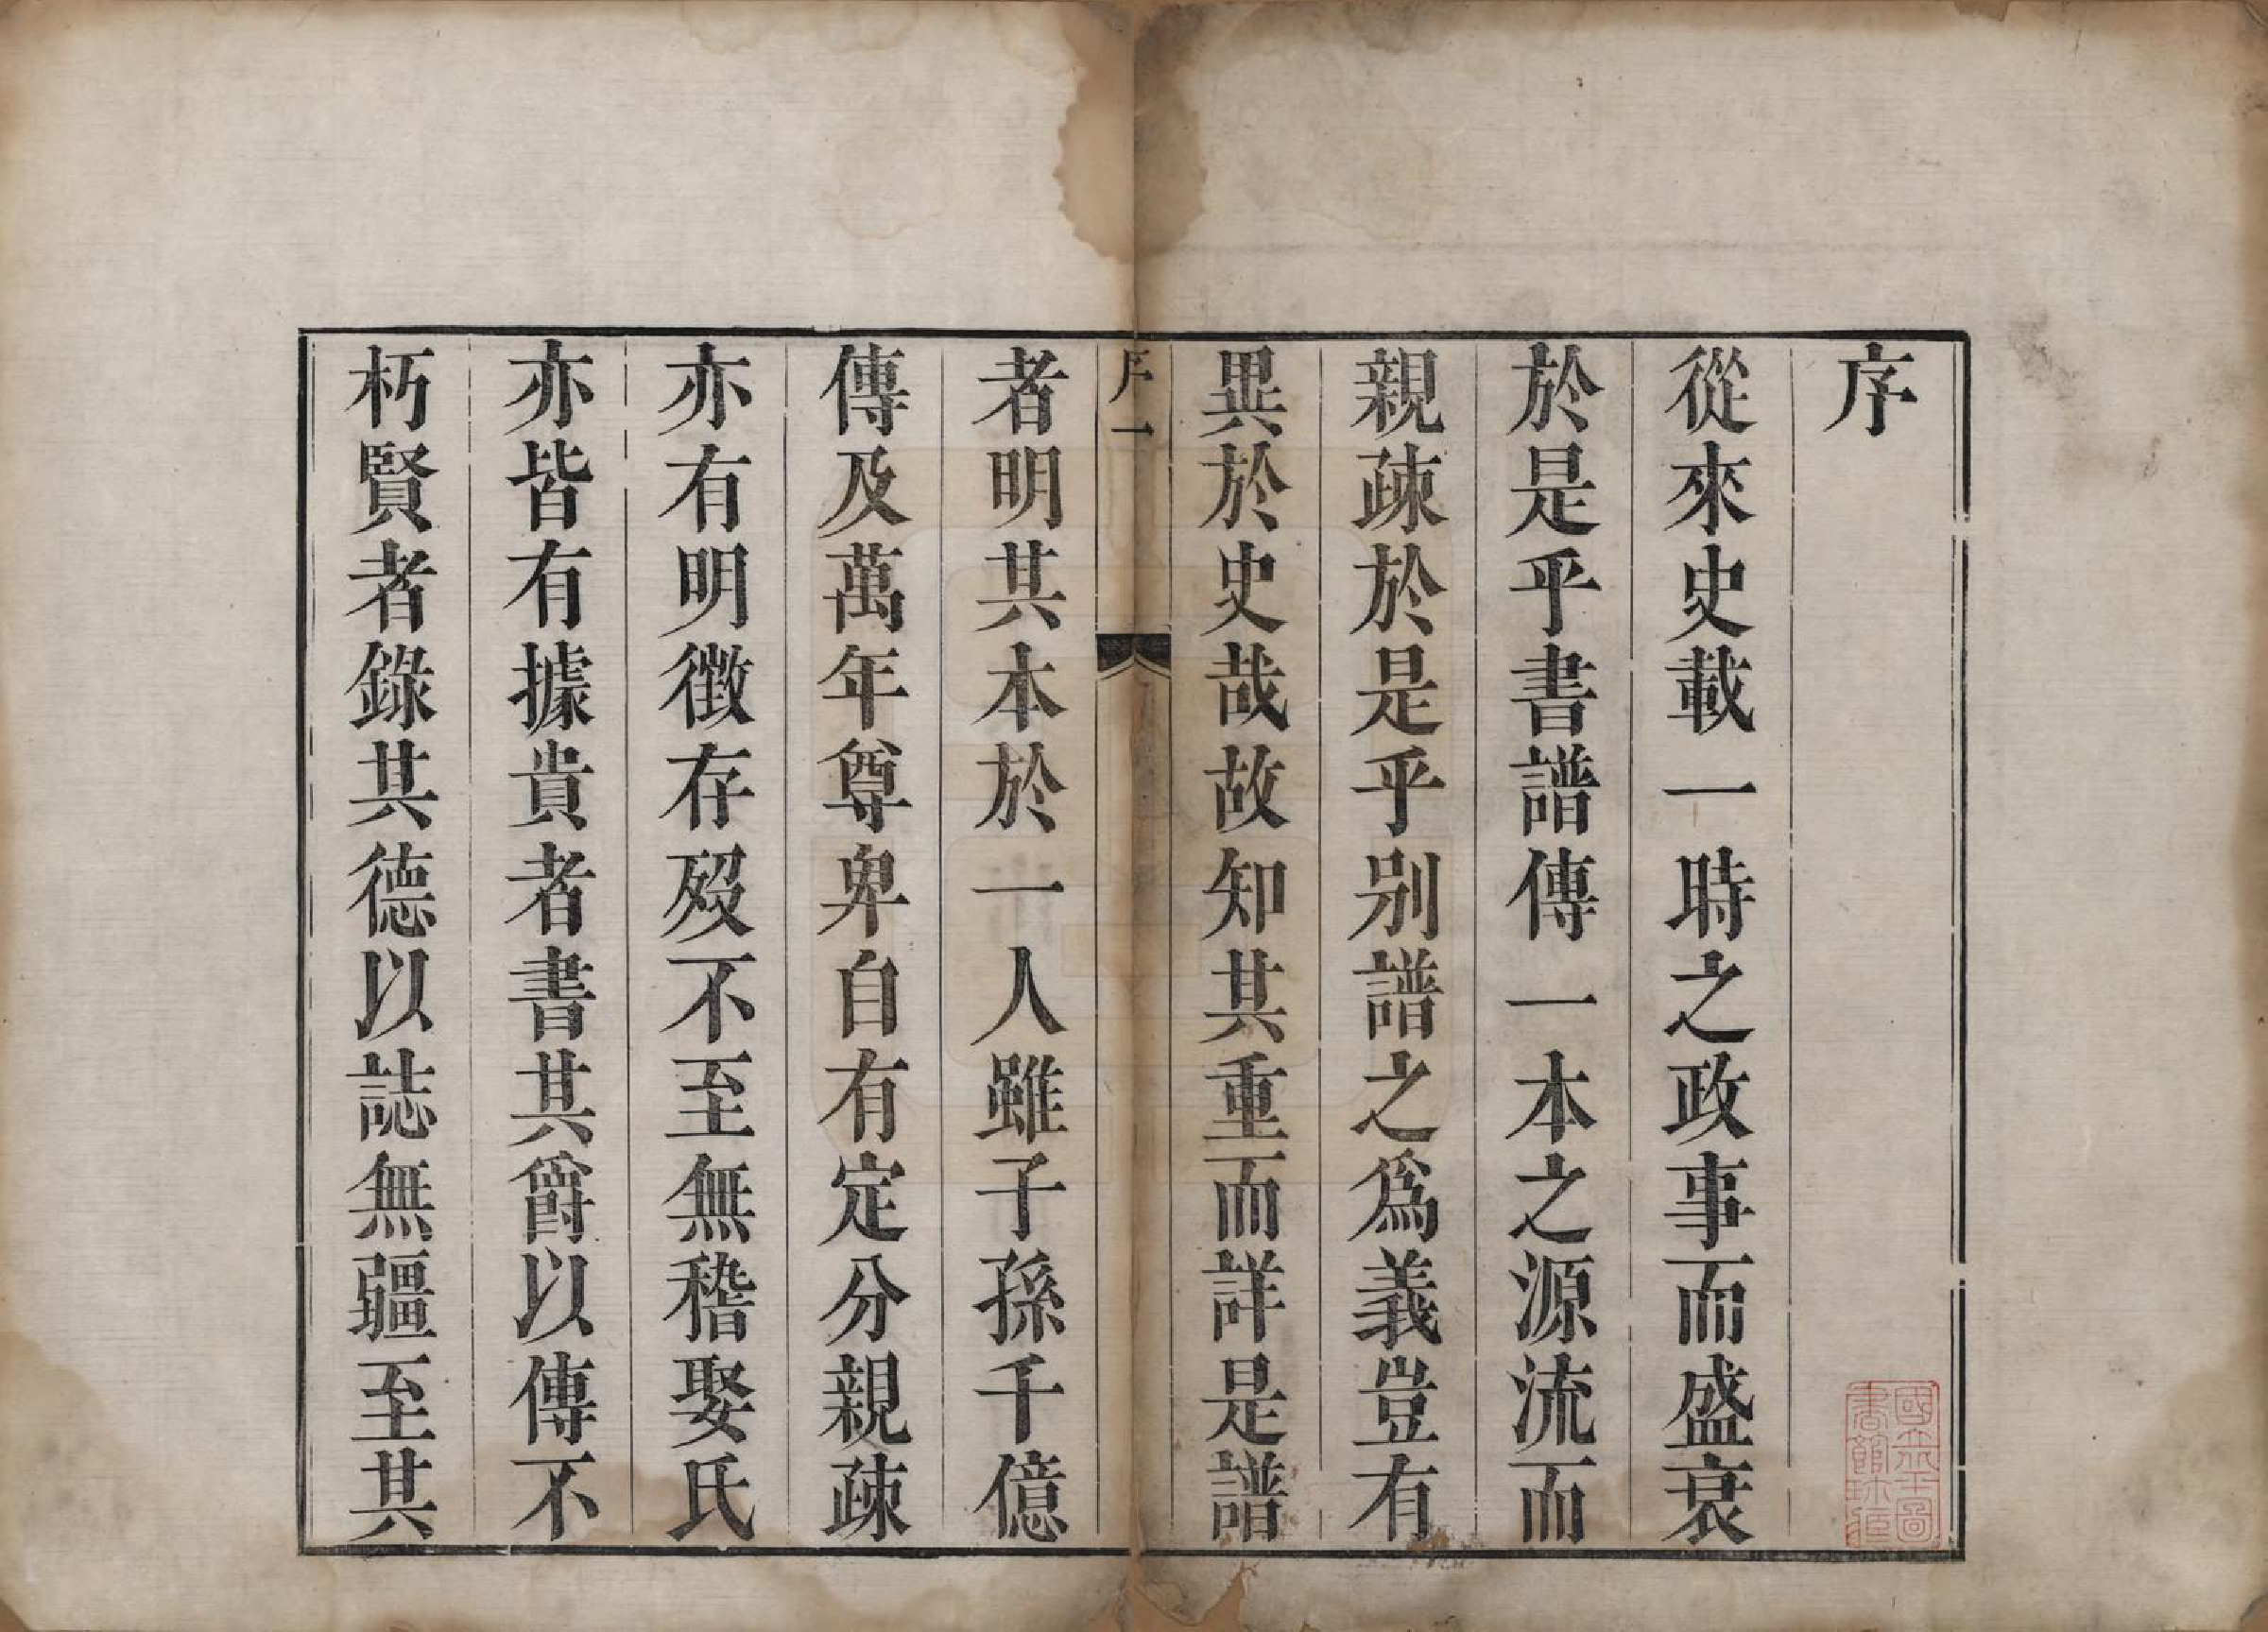 序
從來史載一時之政事而盛衰
於是乎書譜傳一本之源流而
親疎於是乎别譜之爲義豈有
異於史哉故知其重而詳是譜
序一
者明其本於一人雖子孫千億
傳及萬年尊卑自有定分親疎
亦有明徴存殁不至無稽娶氏
亦皆有據貴者書其爵以傳不
朽賢者錄其德以誌無疆至其
國立北平圖
書館珍藏